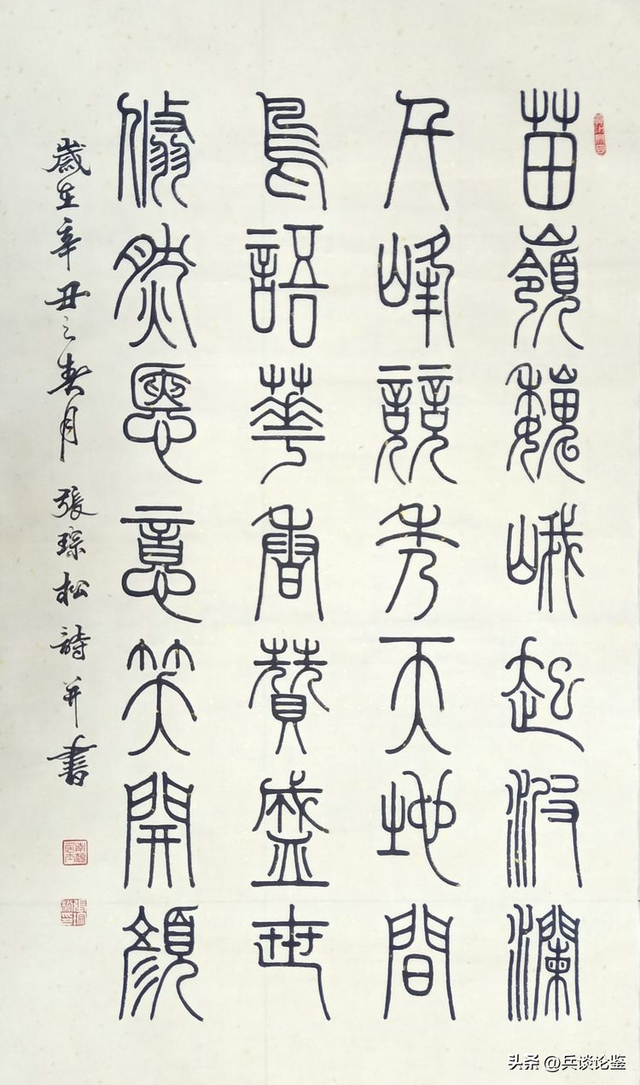 苗嶺巍峨起波瀾
千峰競秀天地間
鳥語華香贊盛世
翛然愜意笑開顏
歲在辛丑之春月 張琮松詩并書
头条 @兵谈论鉴